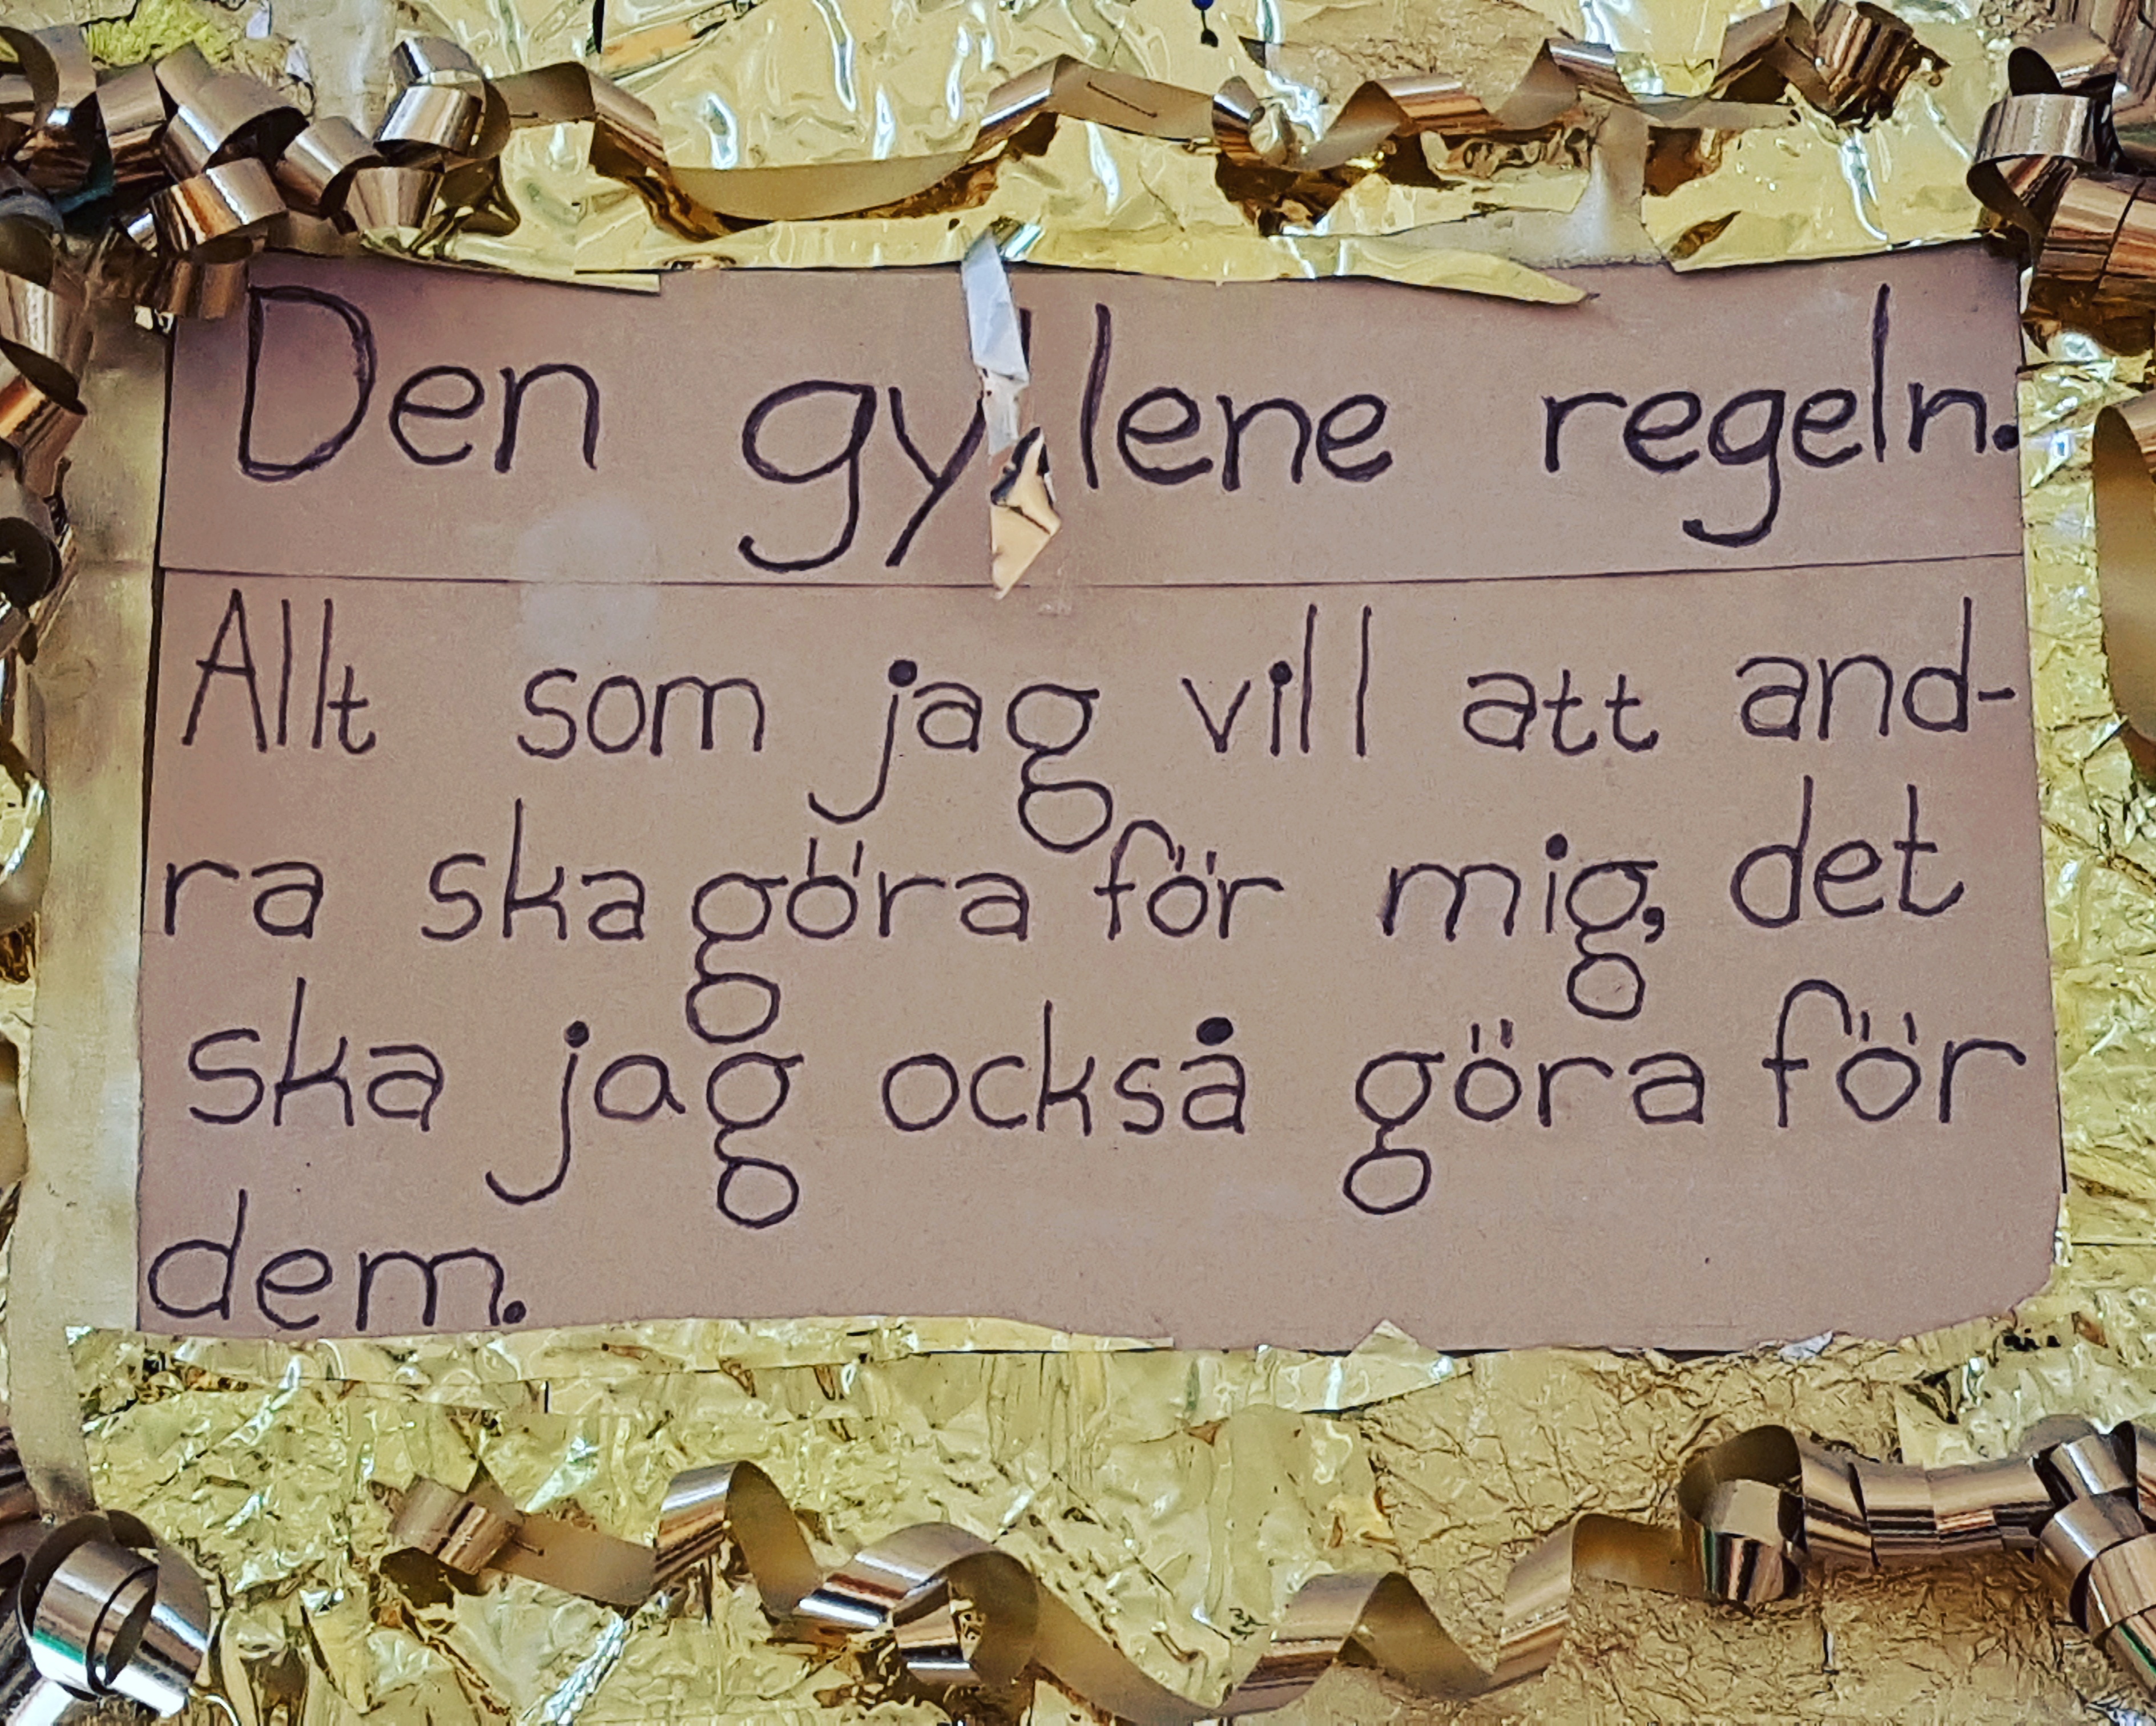 Den gyllene regeln.
Allt som jag vill att and-
ra ska göra för mig, det
ska jag också göra för
dem.